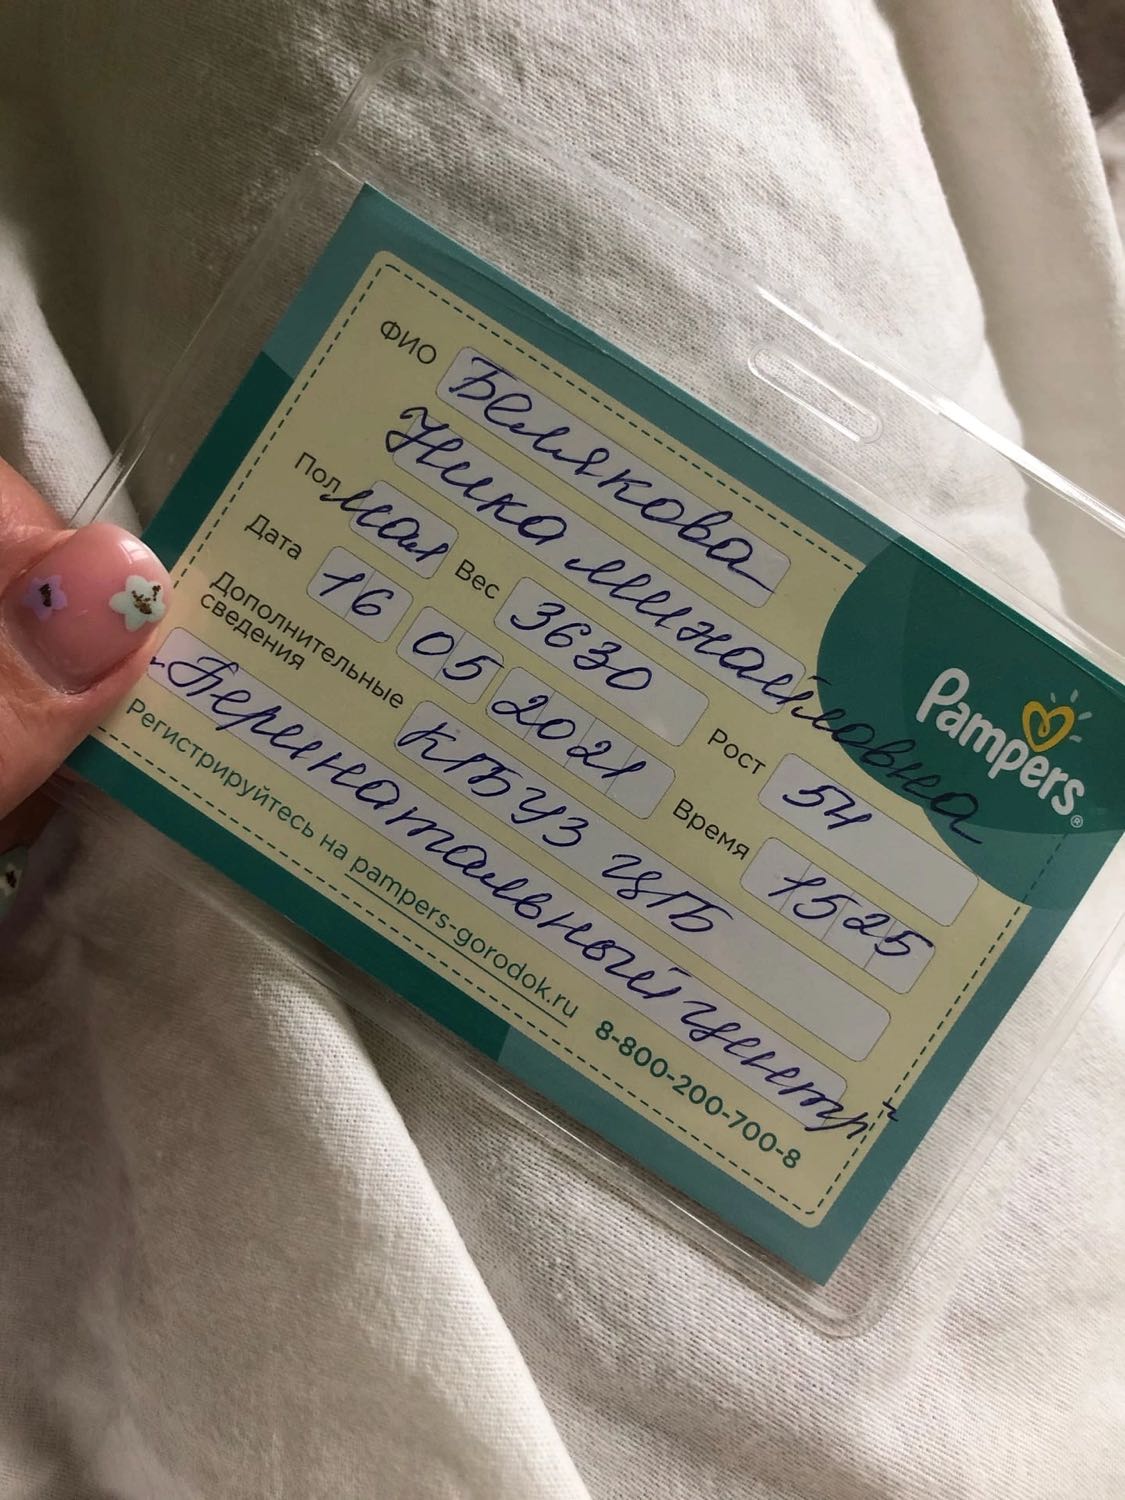 ФИО Белякова
Ника Михайловна
Pampers®
Пол мал Вес 3630 Рост 54
Дата 16 05 2021 Время 1525
Дополнительные
сведения КГБУЗ ЦГБ
"Перинатальный центр"
Регистрируйтесь на pampers-gorodok.ru 8-800-200-700-8